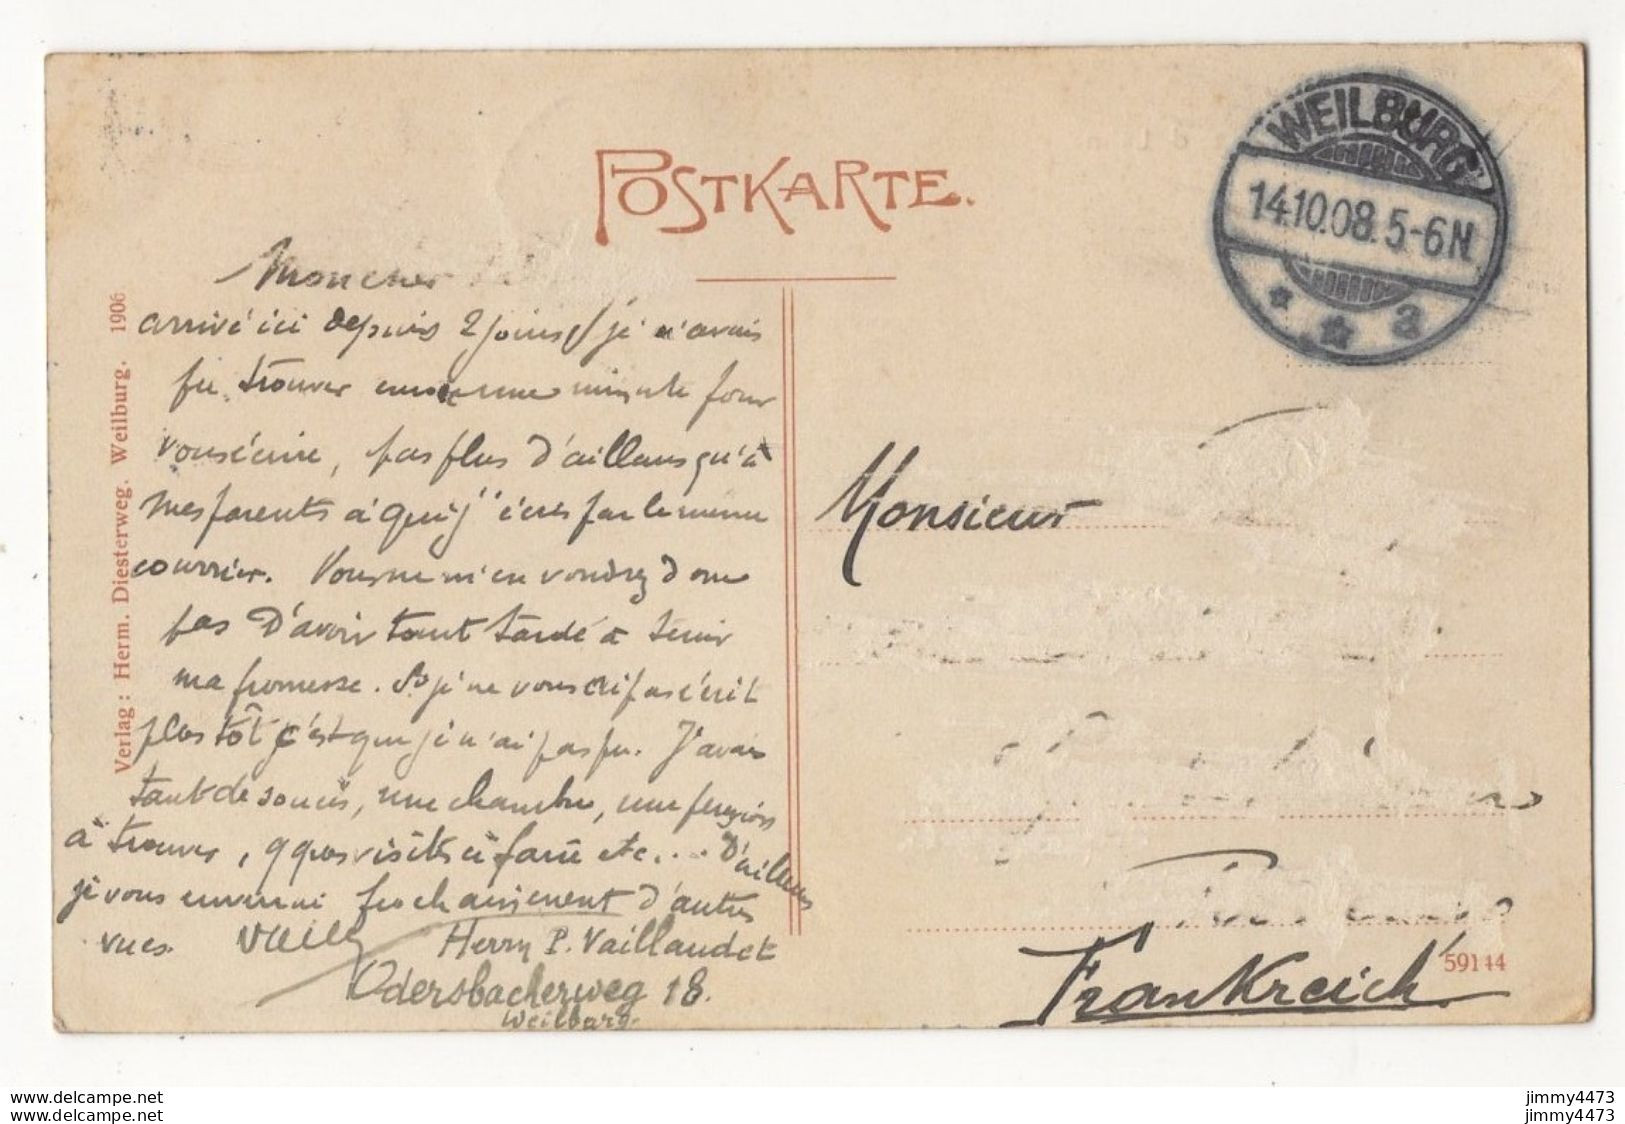 POSTKARTE.
WEILBURG
14.10.08. 5-6N
* * a
Verlag: Herm. Diesterweg. Weilburg. 1906
Mon cher
arrivé ici depuis 2 jours je n'avais
pu trouver encore une minute pour
vous écrire, pas plus d'ailleurs qu'à
mes parents à qui j'écris par le même
courrier. Vous ne m'en voudrez donc
pas d'avoir tant tardé à tenir
ma promesse. Si je ne vous ai pas écrit
plus tôt c'est que je n'ai pas pu. J'avais
tant de soucis, une chambre, une pension
à trouver, qques visites à faire etc... D'ailleurs
je vous enverrai prochainement d'autres
vues.
Herrn P. Vaillaudet
Odersbacherweg 18.
Weilburg.
Monsieur
Frankreich
59144
jimmy4473
www.delcampe.net
jimmy4473
www.delcampe.net